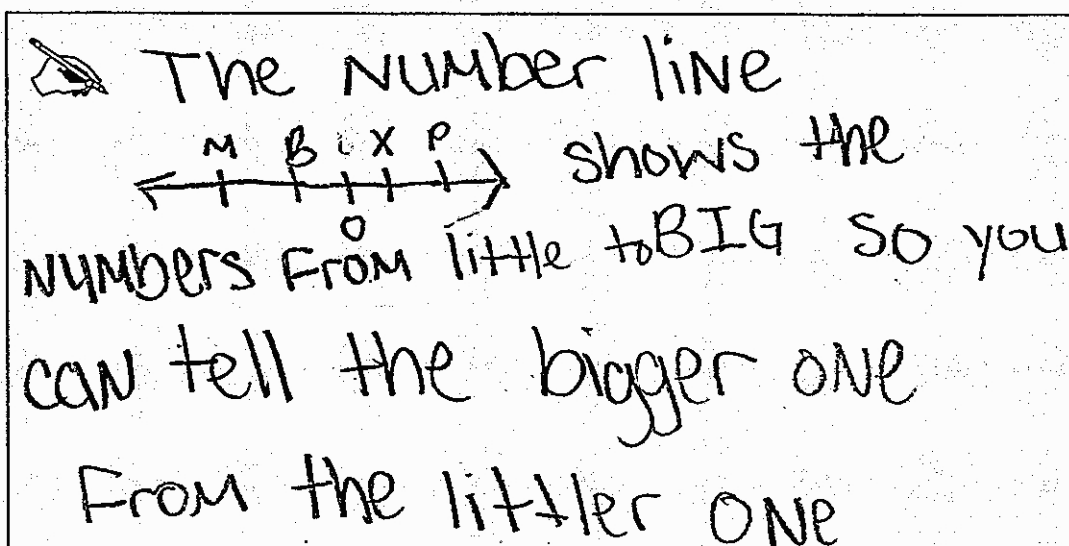 The Number line
M B L X P shows the
0
Numbers From little to BIG so you
can tell the bigger one
From the littler one